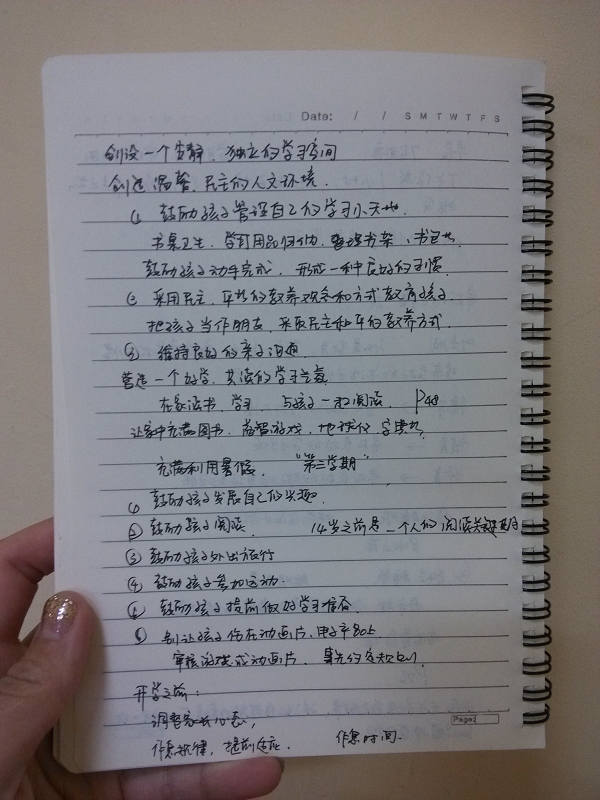 Date: / / S M T W T F S
创设一个安静、独立的学习空间
创造温馨、民主的人文环境.
① 鼓励孩子管理自己的学习小天地.
书桌卫生、学习用品归位、整理书架、书包等
鼓励孩子动手完成, 形成一种良好的习惯.
② 采用民主、平等的教养观念和方式教育孩子
把孩子当作朋友, 采取民主和平的教养方式.
③ 维持良好的亲子沟通
营造一个好学、共读的学习氛围
在家读书、学习、与孩子一起阅读. P48
让家中充满图书、益智游戏、地球仪、字典等
充满利用暑假. "第三学期"
① 鼓励孩子发展自己的兴趣.
② 鼓励孩子阅读. 14岁之前是一个人的阅读关键期
③ 鼓励孩子外出旅行
④ 鼓励孩子参加运动.
⑤ 鼓励孩子提前做好学习准备
⑥ 别让孩子停在动画片、电子产品上
审核游戏或动画片、事先约定规则.
开学之前:
调整家长心态,
作息规律, 提前适应. 作息时间.
Page: